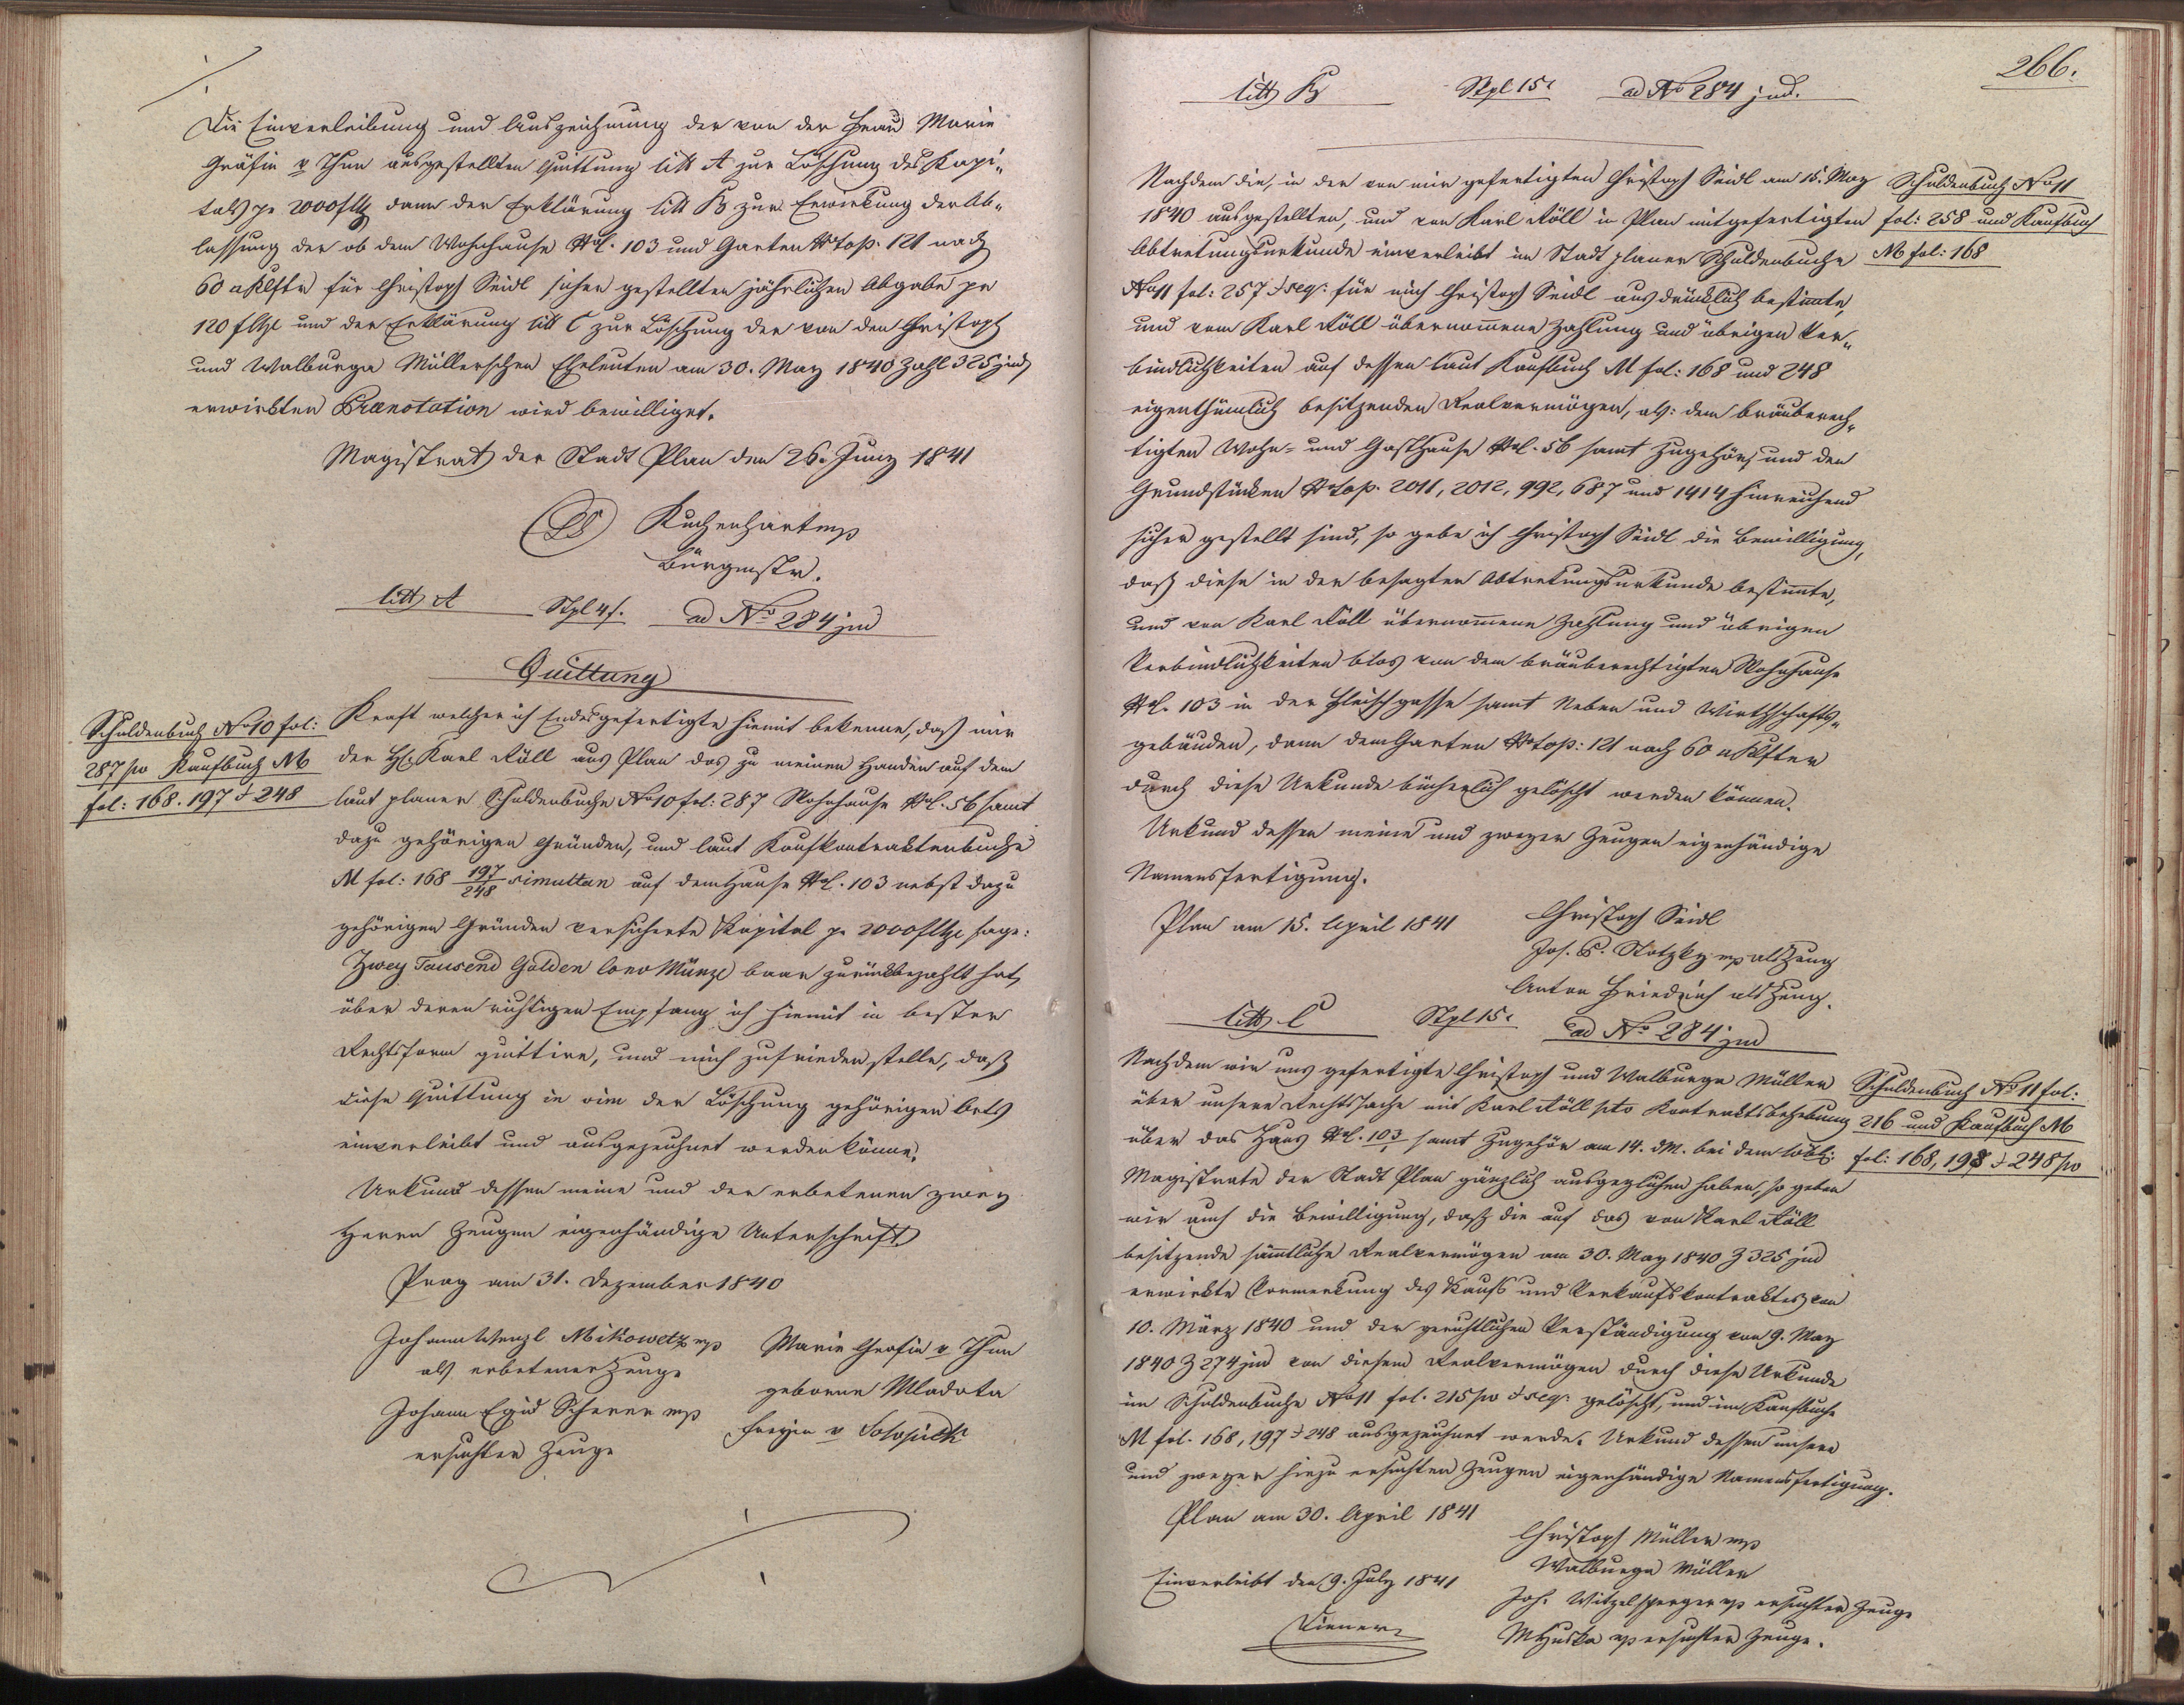 Die Einverleibung und Auszeichnung der von der Frau Marie
Gräfin v Thun ausgestellten Quittung litt A zur Löschung des Kapi„
tals pr 2000 f dann der Erklärung litt B zur Erwirkung der Ab„
lassung der ob dem Wohnhause 103 und Garten Nrtop. 121 nach
60 Klftr für Christoph Seidl sicher gestellten jährlichen Abgabe pr
120 f und der Erklärung litt C zur Löschung der von den Christoph
und Walburga Müllerschen Eheleuten am 30. May 1840 Zahl 325 jud
erwirkten Praenotation wird bewilliget.
Magistrat der Stadt Plan den 26. Juny 1841
(LS) Kuchenhart mp
Bürgmstr.
litt A Stpl 4 f. ad No 284 jud
Quittung
Schuldenbuch No 10 fol:
287 po Kaufbuch M
fol: 168. 197 & 248
Kraft welcher ich Endesgefertigte hiemit bekenne, daß mir
der H. Karl Köll aus Plan das zu meinen Handen auf dem
laut planer Schuldenbuche No 10 fol: 287 Wohnhause 56 samt
dazu gehörigen Gründen, und laut Kaufkontraktenbuche
M fol: 168 197/248 simultan auf dem Hause 103 nebst dazu
gehörigen Gründen versicherte Kapital pr 2000 f sage:
Zwey Tausend Gulden Conv Münze baar zurückbezahlt hat,
über deren richtigen Empfang ich hiemit in bester
Rechtsform quittire, und mich zufriedenstelle, daß
diese Quittung in vim der Löschung gehörigen Orts
einverleibt und ausgezeichnet werden könne.
Urkund dessen meine und der erbetenen zwey
Herrn Zeugen eigenhändige Unterschrift
Prag am 31. Dezember 1840
Johann Wenzl Mikowetz mp
als erbetener Zeuge
Johann Egid Scherer mp
ersuchter Zeuge
Marie Gräfin v Thun
geborne Mladota
Freyin v Solopisk
266.
litt B Stpl 15 ad No 284 jud.
Nachdem die, in der von mir gefertigten Christoph Seidl am 15. May
1840 ausgestellten, und von Karl Köll in Plan mitgefertigten
Abtretungsurkunde einverleibt im Stadt planer Schuldenbuche
No 11 fol: 257 & seq: für mich Christoph Seidl ausdrücklich bestimmte,
und vom Karl Köll übernommene Zahlung und übrigen Ver„
bindlichkeiten auf dessen laut Kaufbuch M fol: 168 und 248
eigenthümlich besitzenden Realvermögen, als: dem bräuberech„
tigten Wohn- und Gasthause 56 samt Zugehör, und den
Grundstücken Nrtop. 2011, 2012, 992, 687 und 1414 hinreichend
sicher gestellt sind, so gebe ich Christoph Seidl die Bewilligung,
daß diese in der besagten Abtretungsurkunde bestimmte,
und von Karl Köll übernommene Zahlung und übrigen
Verbindlichkeiten blos von dem bräuberechtigten Wohnhause
103 in der Fleischgasse samt Neben und Wirthschafts„
gebäuden, dann dem Garten Nrtop: 121 nach 60 Klfter
durch diese Urkunde bücherlich gelöscht werden können.
Urkund dessen meine und zweyer Zeugen eigenhändige
Namensfertigung.
Schuldenbuch No 11
fol: 258 und Kaufbuch
M fol: 168
Plan am 15. April 1841
Christoph Seidl
Jos. Stotzky mp als Zeug
Anton Friedrich als Zeug.
litt C Stpl 15 ad No 284 jud
Nachdem wir uns gefertigte Christoph und Walburga Müller
über unsere Rechtssache mit Karl Köll pto Kontraktsbehebung
über das Haus 103 samt Zugehör am 14. d.M. bei dem löbl:
Magistrate der Stadt Plan gänzlich ausgeglichen haben, so geben
wir auch die Bewilligung, daß die auf das von Karl Köll
besitzende sämmtliche Realvermögen am 30. May 1840 Z 325 jud
erwirkte Vormerkung des Kaufs und Verkaufskontraktes von
10. März 1840 und der gerichtlichen Verständigung von 9. May
1840 Z 274 jud von diesem Realvermögen durch diese Urkunde
im Schuldenbuche No 11 fol. 215 po & seq: gelöscht, und im Kaufbuche
M fol. 168, 197 & 248 ausgezeichnet werde. Urkund dessen unsere
und zweyer hiezu ersuchten Zeugen eigenhändige Namensfertigung.
Schuldenbuch No 11 fol:
216 und Kaufbuch M
fol: 168, 198 & 248 po
Plan am 30. April 1841
Christoph Müller mp
Walburga Müller
Joh. Witzelsperger mp ersuchter Zeuge
M Huska mp ersuchter Zeuge.
Einverleibt den 9. July 1841
Diener